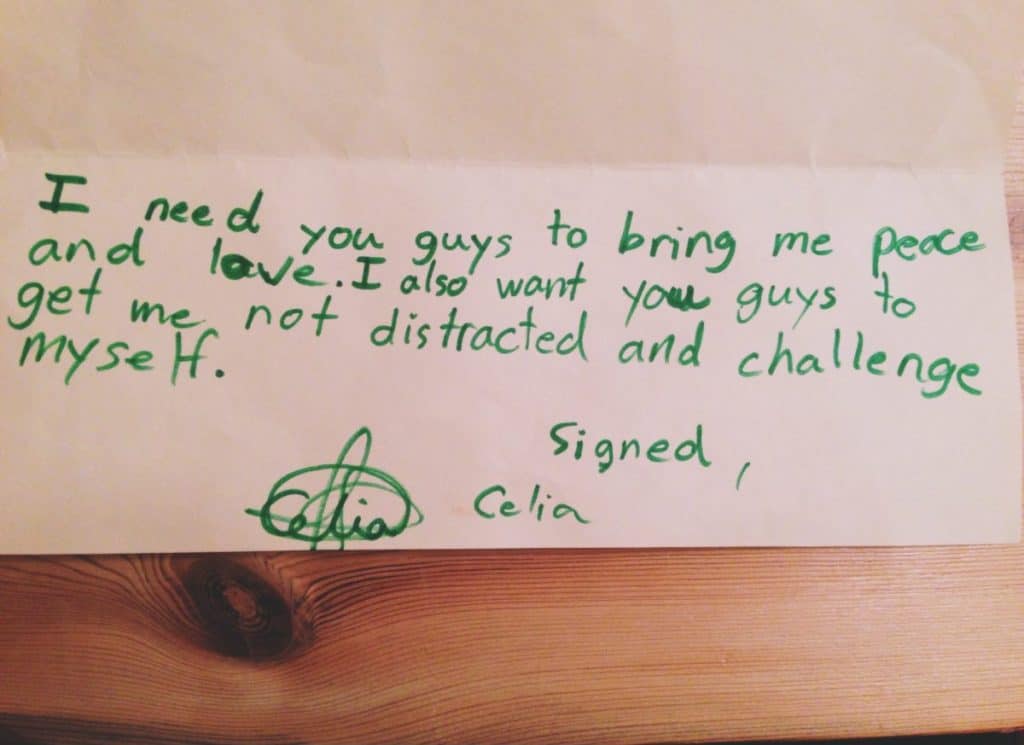 I need you guys to bring me peace
and love. I also want you guys to
get me not distracted and challenge
myself.
Signed,
Celia Celia